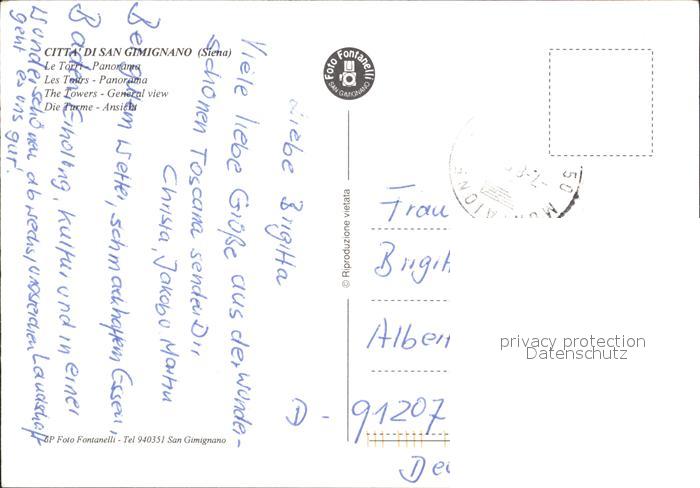 CITTA' DI SAN GIMIGNANO (Siena)
Le Torri - Panorama
Les Tours - Panorama
The Towers - General view
Die Türme - Ansicht
Liebe Brigitta
Viele liebe Grüße aus der wunder-
schönen Toscana senden Dir
Christa, Jakob u. Martin
Bei gutem Wetter, schmackhaftem Essen,
Baden, Erholung, Kultur und in einer
wunderschönen abwechslungsreichen Landschaft
geht es uns gut!
Foto Fontanelli
SAN GIMIGNANO
© Riproduzione vietata
50 MON
Frau
Brigit
Alber
D - 91207
De
privacy protection
Datenschutz
GP Foto Fontanelli - Tel 940351 San Gimignano